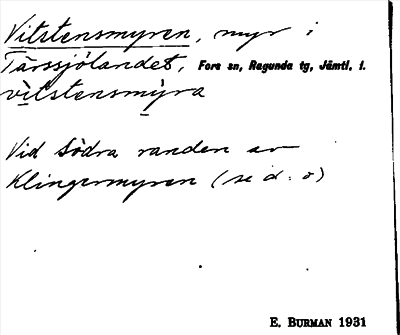 Vitstensmyren, myr i
Tärssjölandet, Fors sn, Ragunda tg, Jämtl. l.
vìtstensmy̆ra
Vid södra randen av
Klingermyren (se d. o)
E. BURMAN 1931